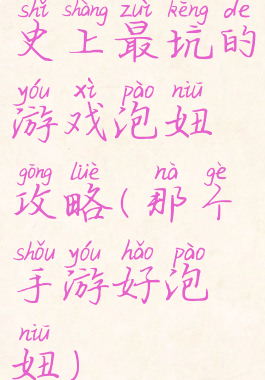 shǐ shàng zuì kēng de
史上最坑的
yóu xì pào niū
游戏泡妞
gōng lüè nà gè
攻略(那个
shǒu yóu hǎo pào
手游好泡
niū
妞)